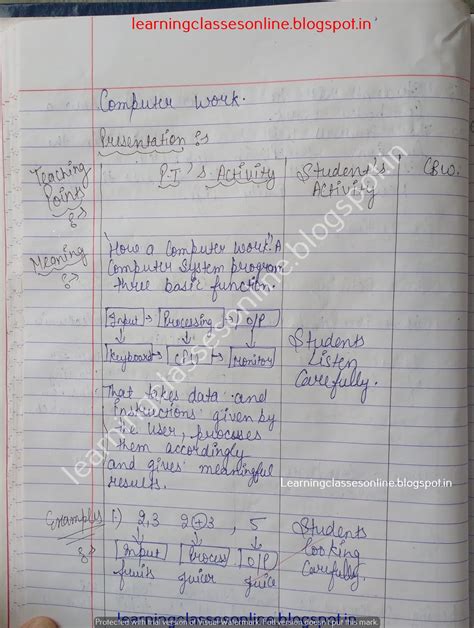 learningclassesonline.blogspot.in
Computer Work.
Presentation :-
Teaching Points :-
P.T's Activity
Student's Activity
CBW.
Meaning :-
"How a Computer Work". A
Computer System program
three basic function.
Input → Processing → O/P
Keyboard → CPU → Monitor
That takes data and
instructions given by
the user, processes
them accordingly
and gives meaningful
results.
Students
Listen
Carefully.
Learningclassesonline.blogspot.in
Examples :-
1) 2,3 2+3 , 5
Input → Process → O/P
fruits juicer juice
Students
Looking
Carefully.
learningclassesonline.blogspot.in
learningclassesonline.blogspot.in
Protected with trial version of Visual Watermark. Full version doesn't put this mark.